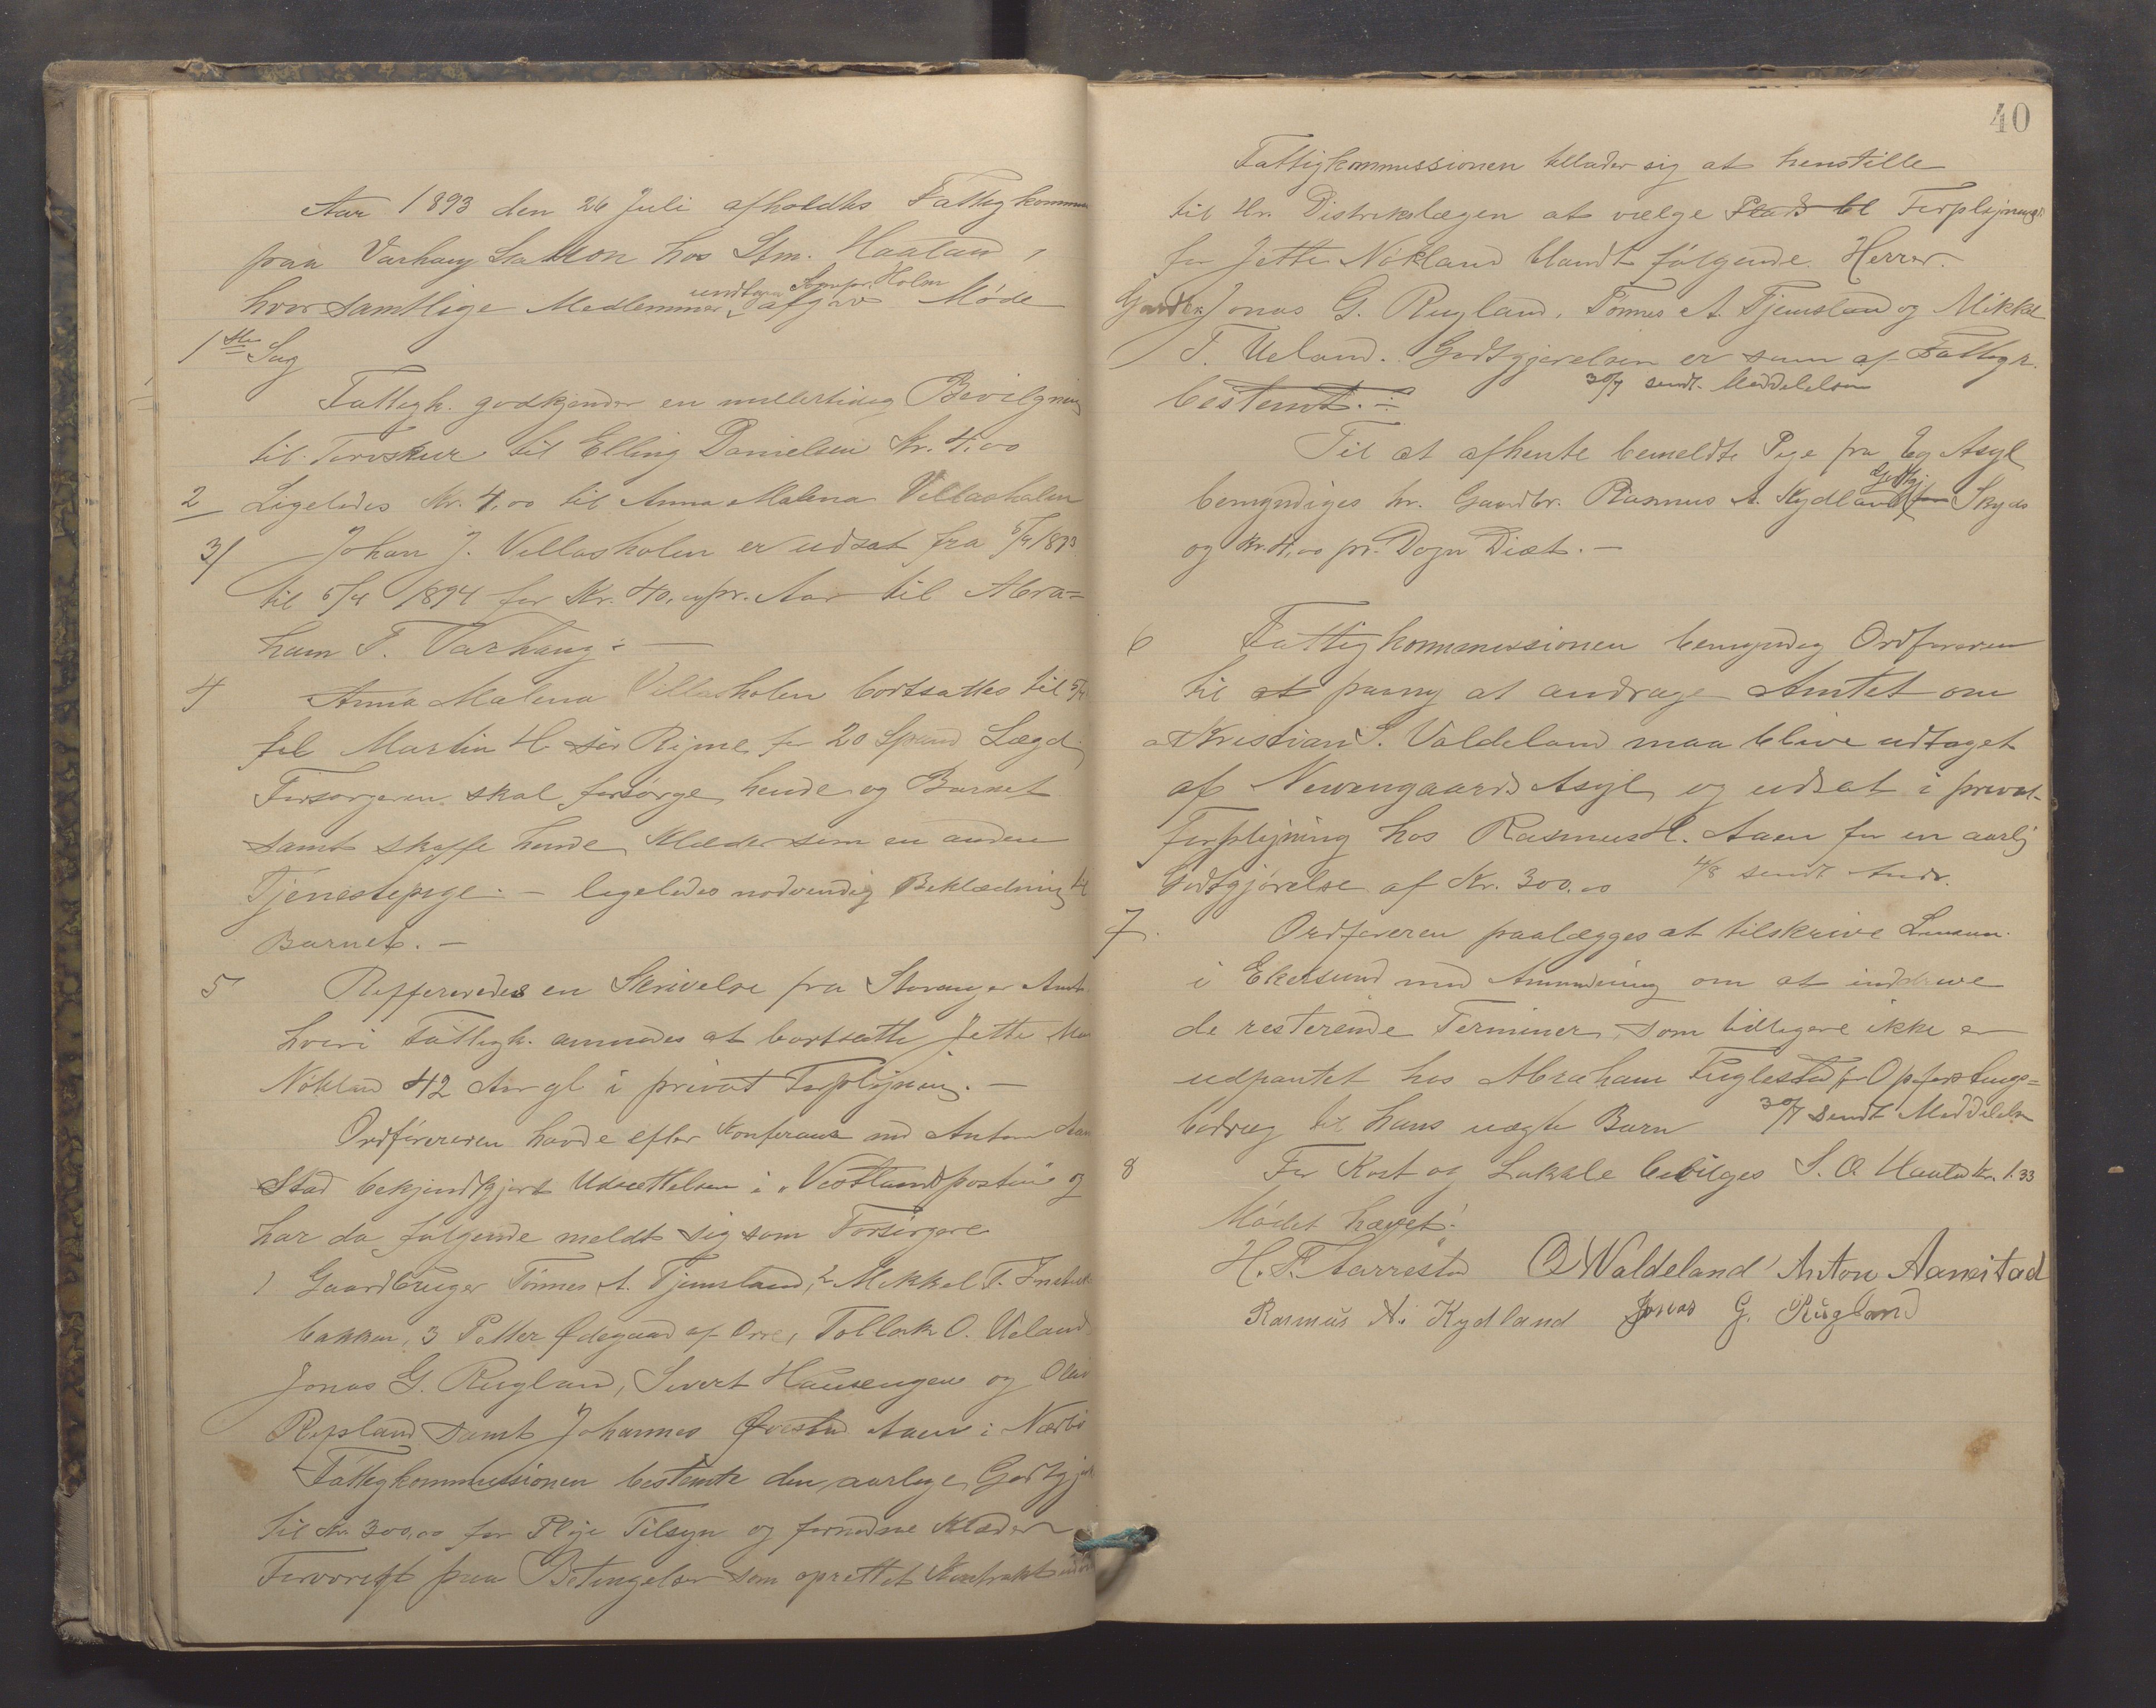 Aar 1893 den 26 Juli afholdtes Fattigkomm
paa Varhaug Station hos Stm. Haaland,
undtagen Sognepr. Holm
hvor samtlige Medlemmer afgav Møde
1ste Sag
Fattigk. godkjender en midlertidig Bevilgning
til Torvskur til Elling Danielsen Kr. 4,00
2 Ligeledes Kr. 4,00 til Anna Malena Villasholen
3/ Johan J. Villasholen er udsat fra 5/4 1893
til 5/4 1894 for Kr. 40, pr. Aar til Abra=
ham T. Varhaug. —
4 Anna Malena Villasholen bortsattes til 5/4
til Martin H Rime for 20 Spand Lægd.
Forsørgeren skal forsørge hende og Barnet
samt skaffe hende Klæder som en anden
Tjenestepige. — ligeledes nødvendig Beklædning til
Barnet. —
5 Reffereredes en Skrivelse fra Stavanger Amt
hvori Fattigk. anmodes at bortsætte Jette
Nökland 42 Aar gl i privat Forplejning. —
Ordföreren havde efter Konferanse med Anton Aan
stad bekjendtgjort Udsættelsen i "Vestlandsposten" og
har da følgende meldt sig som Forsörgere
1 Gaardbruger Tönnes A. Tjemsland, 2 Mikkel T.
bakken, 3 Petter Ødegaard af Orre, Tollak O. Ueland
Jonas G. Rugland, Sivert Hansengen og Olav
Repsland samt Johannes Aaen i Nærbö
Fattigkommissionen bestemte den aarlige Godtgj
til Kr. 300,00 for Pleje Tilsyn og fornødne Klæder
Forøvrigt paa Betingelser som oprettet Kontrakt
40
Fattigkommissionen tillader sig at henstille
til Hr. Distrikslægen at vælge Plads til Forplejnings
for Jette Nökland blandt følgende Herrer.
Gaardbr. Jonas G. Rugland, Tönnes A. Tjemsland og Mikkel
T. Ueland. Godtgjørelsen er som af Fattigk.
bestemt. — 30/7 sendt Meddelelse
Til at afhente bemeldte Pige fra Eg Asyl
Godtgj.
bemyndiges hr. Gaardbr. Rasmus A. Kydland for Skyds
og Kr. 4,00 pr. Døgn Diæt. —
6 Fattigkommissionen bemyndig Ordføreren
til at paany at andrage Amtet om
at Kristian S. Valdeland maa blive udtaget
af Nevengaards Asyl og udsat i privat
Forplejning hos Rasmus H. Aaen for en aarlig
Godtgjörelse af Kr. 300.00 4/8 sendt Andr.
7. Ordføreren paalægges at tilskrive Lensm.
i Ekersund med Anmodning om at inddrive
de resterende Terminer, som tidligere ikke er
udpantet hos Abraham Fuglestad for Opfostrings=
bidrag til hans uægte Barn 30/7 sendt Meddelelse
8 For Kost og Lokale bevilges S. O Haaland kr. 1.33
Mödet hævet.
H. T. Aarrestad O Waldeland Anton Aanestad
Rasmus A. Kydland Jonas G. Rugland